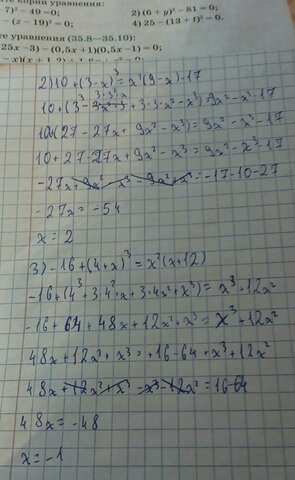 те корни уравнения:
7)² − 49 = 0;   2) (6 + y)² − 81 = 0;
− (z − 19)² = 0;   4) 25 − (13 + t)² = 0.
те уравнения (35.8—35.10):
25x − 3) − (0,5x + 1)(0,5x − 1) = 0;
2) 10 + (3 − x)³ = x²(9 − x) − 17
10 + 27 − 27x + 9x² − x³ = 9x² − x³ − 17
−27x + 9x² − x³ − 9x² + x³ = −17 − 10 − 27
−27x = −54
x = 2
3) −16 + (4 + x)³ = x²(x + 12)
−16 + (4³ + 3·4²·x + 3·4x² + x³) = x³ + 12x²
−16 + 64 + 48x + 12x² + x³ = x³ + 12x²
48x + 12x² + x³ = +16 − 64 + x³ + 12x²
48x + 12x² + x³ − x³ − 12x² = 16 − 64
48x = −48
x = −1